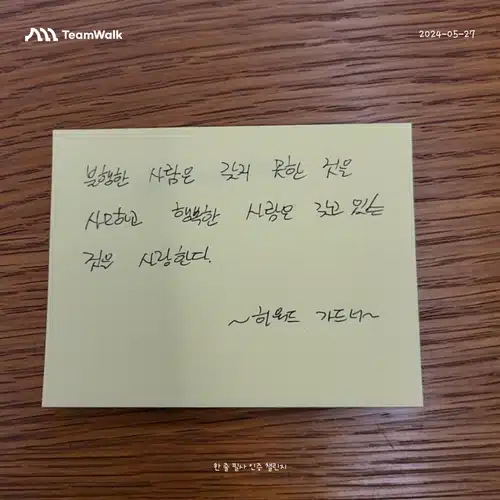 TeamWalk
2024-05-27
불행한 사람은 갖지 못한 것을
사모하고 행복한 사람은 갖고 있는
것을 사랑한다.
~하워드 가드너~
한 줄 필사 인증 챌린지